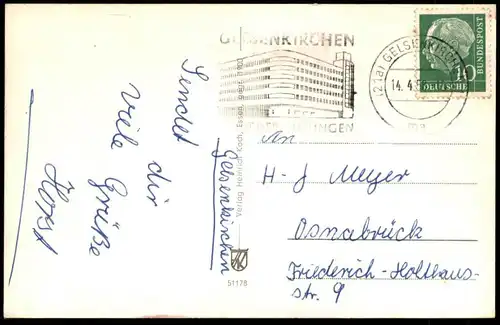 GELSENKIRCHEN
(21a) GELSENKIRCHEN
14.4.
mg
10
DEUTSCHE
BUNDESPOST
Sendet dir
Viele Grüße
Horst
Gelsenkirchen
Verlag Heinrich Koch, Essen
51178
An
H-J Meyer
Osnabrück
Friederich-Holthaus-
str. 9